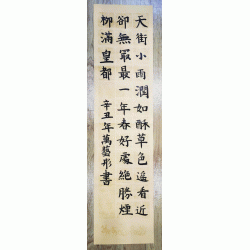 天街小雨潤如酥草色遙看近
卻無最最一年春好處絕勝煙
柳滿皇都 辛丑年萬藝彤書